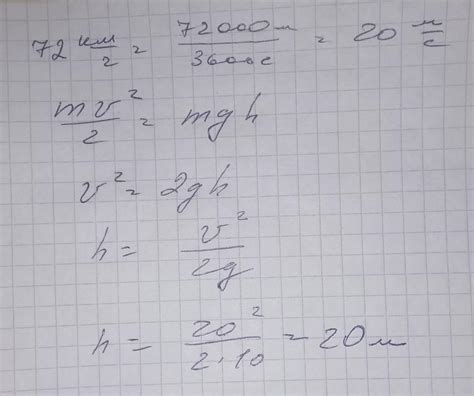 72 км/г = 72000м/3600с = 20 м/с
mv²/2 = mgh
v² = 2gh
h = v²/2g
h = 20²/2·10 = 20м